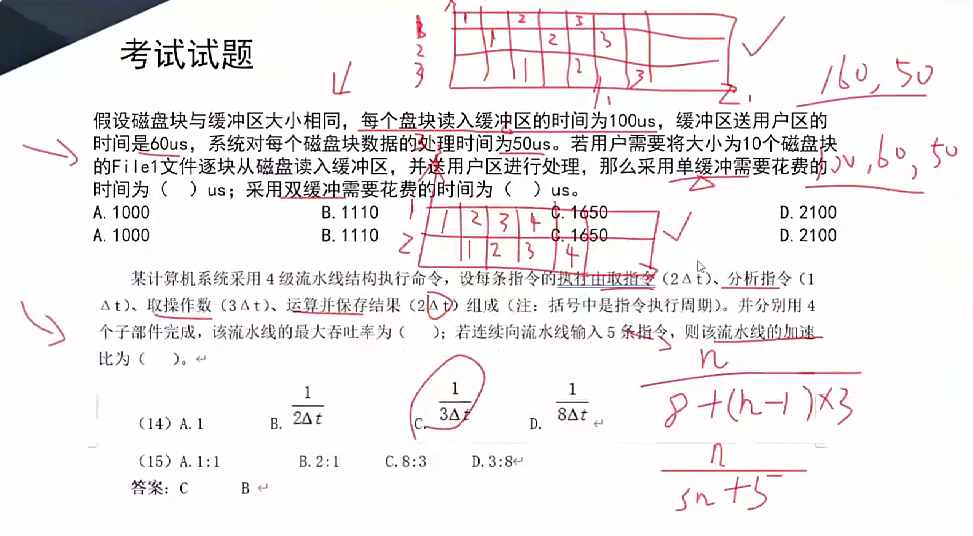 考试试题
1 2 3
1 2 3
2
3 1 2 3
160, 50
假设磁盘块与缓冲区大小相同，每个盘块读入缓冲区的时间为100us，缓冲区送用户区的
时间是60us，系统对每个磁盘块数据的处理时间为50us。若用户需要将大小为10个磁盘块
的File1文件逐块从磁盘读入缓冲区，并送用户区进行处理，那么采用单缓冲需要花费的
100,60,50
时间为（ ）us；采用双缓冲需要花费的时间为（ ）us。
A.1000 B.1110 C.1650 D.2100
A.1000 B.1110 C.1650 D.2100
1 1 2 3 4
2 1 2 3 4
某计算机系统采用 4 级流水线结构执行命令，设每条指令的执行由取指令（2Δt）、分析指令（1
Δt）、取操作数（3Δt）、运算并保存结果（2Δt）组成（注：括号中是指令执行周期）。并分别用 4
个子部件完成，该流水线的最大吞吐率为（ ）；若连续向流水线输入 5 条指令，则该流水线的加速
比为（ ）。
（14）A.1 B. 1/2Δt C. 1/3Δt D. 1/8Δt
（15）A.1:1 B.2:1 C.8:3 D.3:8
答案：C B
n
8+(n-1)×3
n
3n+5